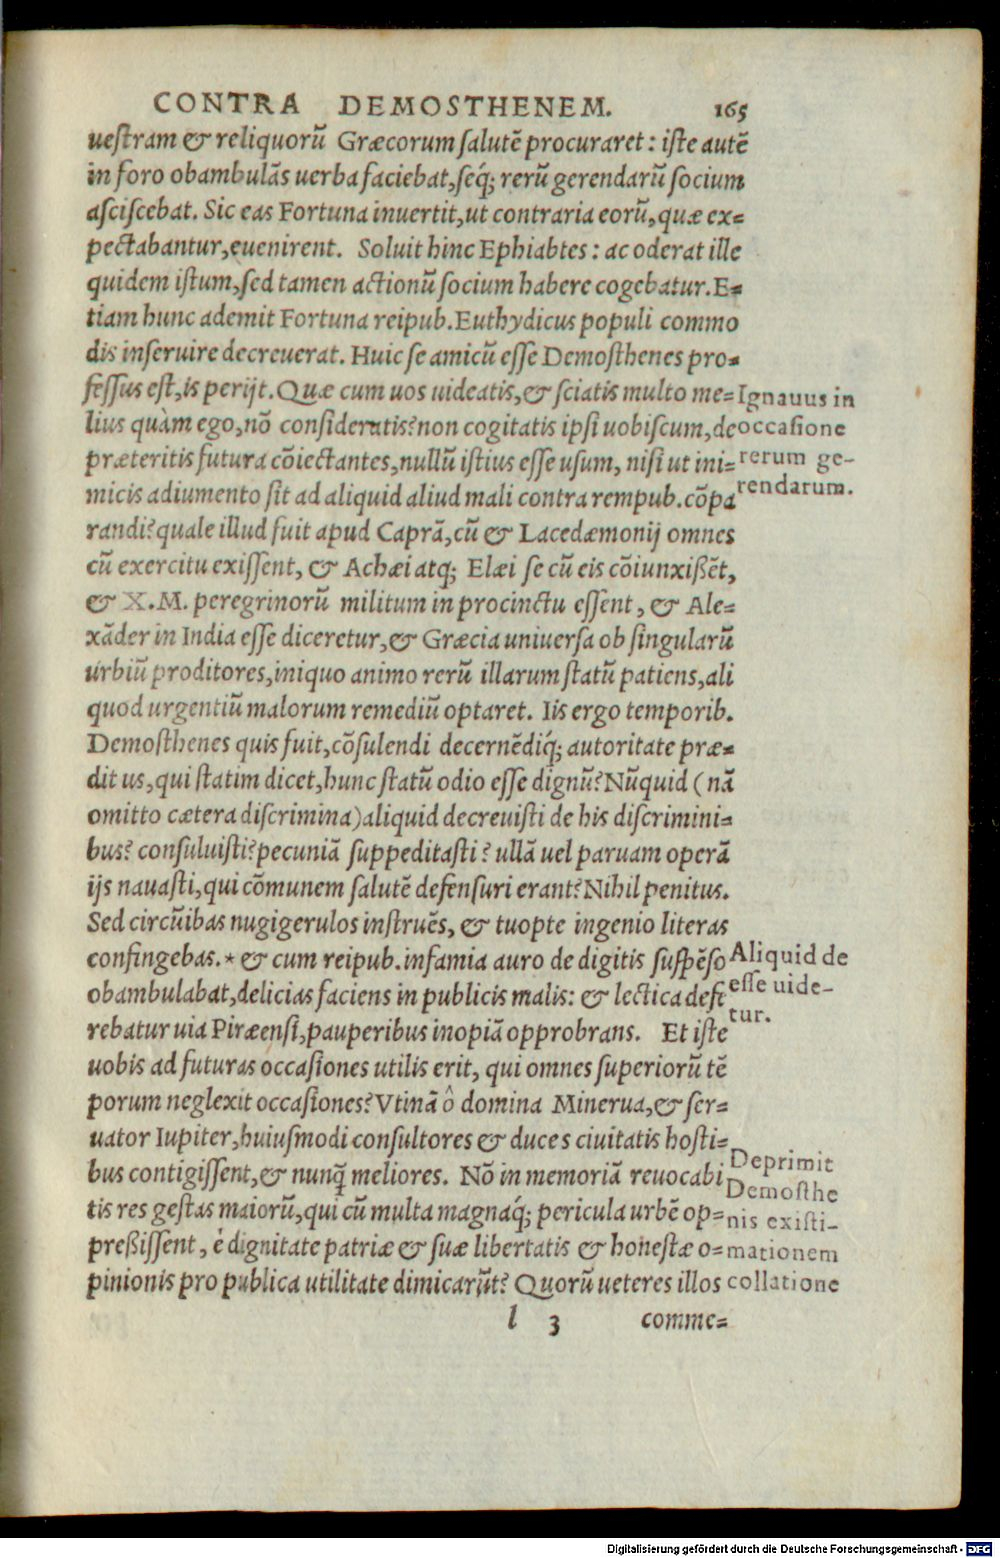 CONTRA DEMOSTHENEM. 165
uestram & reliquorũ Græcorum salutẽ procuraret: iste autẽ
in foro obambulãs uerba faciebat, seq́; rerũ gerendarũ socium
asciscebat. Sic eas Fortuna inuertit, ut contraria eorũ, quæ ex=
pectabantur, euenirent. Soluit hinc Ephiabtes: ac oderat ille
quidem istum, sed tamen actionũ socium habere cogebatur. E=
tiam hunc ademit Fortuna reipub. Euthydicus populi commo
dis inseruire decreuerat. Huic se amicũ esse Demosthenes pro=
fessus est, is perijt. Quæ cum uos uideatis, & sciatis multo me=
lius quàm ego, nõ consideratis? non cogitatis ipsi uobiscum, de
præteritis futura cõiectantes, nullũ istius esse usum, nisi ut ini=
micis adiumento sit ad aliquid aliud mali contra rempub. cõpa
randi? quale illud fuit apud Caprã, cũ & Lacedæmonij omnes
cũ exercitu exissent, & Achæi atq; Elæi se cũ eis cõiunxißẽt,
& X.M. peregrinorũ militum in procinctu essent, & Ale=
xãder in India esse diceretur, & Græcia uniuersa ob singularũ
urbiũ proditores, iniquo animo rerũ illarum statũ patiens, ali
quod urgentiũ malorum remediũ optaret. Iis ergo temporib.
Demosthenes quis fuit, cõsulendi decernẽdiq́; autoritate præ=
ditus, qui statim dicet, hunc statũ odio esse dignũ? Nũquid (nã
omitto cætera discrimina) aliquid decreuisti de his discrimini=
bus? consuluisti? pecuniã suppeditasti? ullã uel paruam operã
ijs nauasti, qui cõmunem salutẽ defensuri erant? Nihil penitus.
Sed circũibas nugigerulos instruẽs, & tuopte ingenio literas
confingebas. * & cum reipub. infamia auro de digitis suspẽso
obambulabat, delicias faciens in publicis malis: & lectica defe
rebatur uia Piræensi, pauperibus inopiã opprobrans. Et iste
uobis ad futuras occasiones utilis erit, qui omnes superiorũ tẽ
porum neglexit occasiones? Vtinã ô domina Minerua, & ser=
uator Iupiter, huiusmodi consultores & duces ciuitatis hosti=
bus contigissent, & nunq̃ meliores. Nõ in memoriã reuocabi
tis res gestas maiorũ, qui cũ multa magnaq́; pericula urbẽ op=
preßissent, è dignitate patriæ & suæ libertatis & honestæ o=
pinionis pro publica utilitate dimicarũt? Quorũ ueteres illos
l 3 comme=
Ignauus in
occasione
rerum ge-
rendarum.
Aliquid de
esse uide-
tur.
Deprimit
Demosthe
nis existi-
mationem
collatione
Digitalisierung gefördert durch die Deutsche Forschungsgemeinschaft - DFG